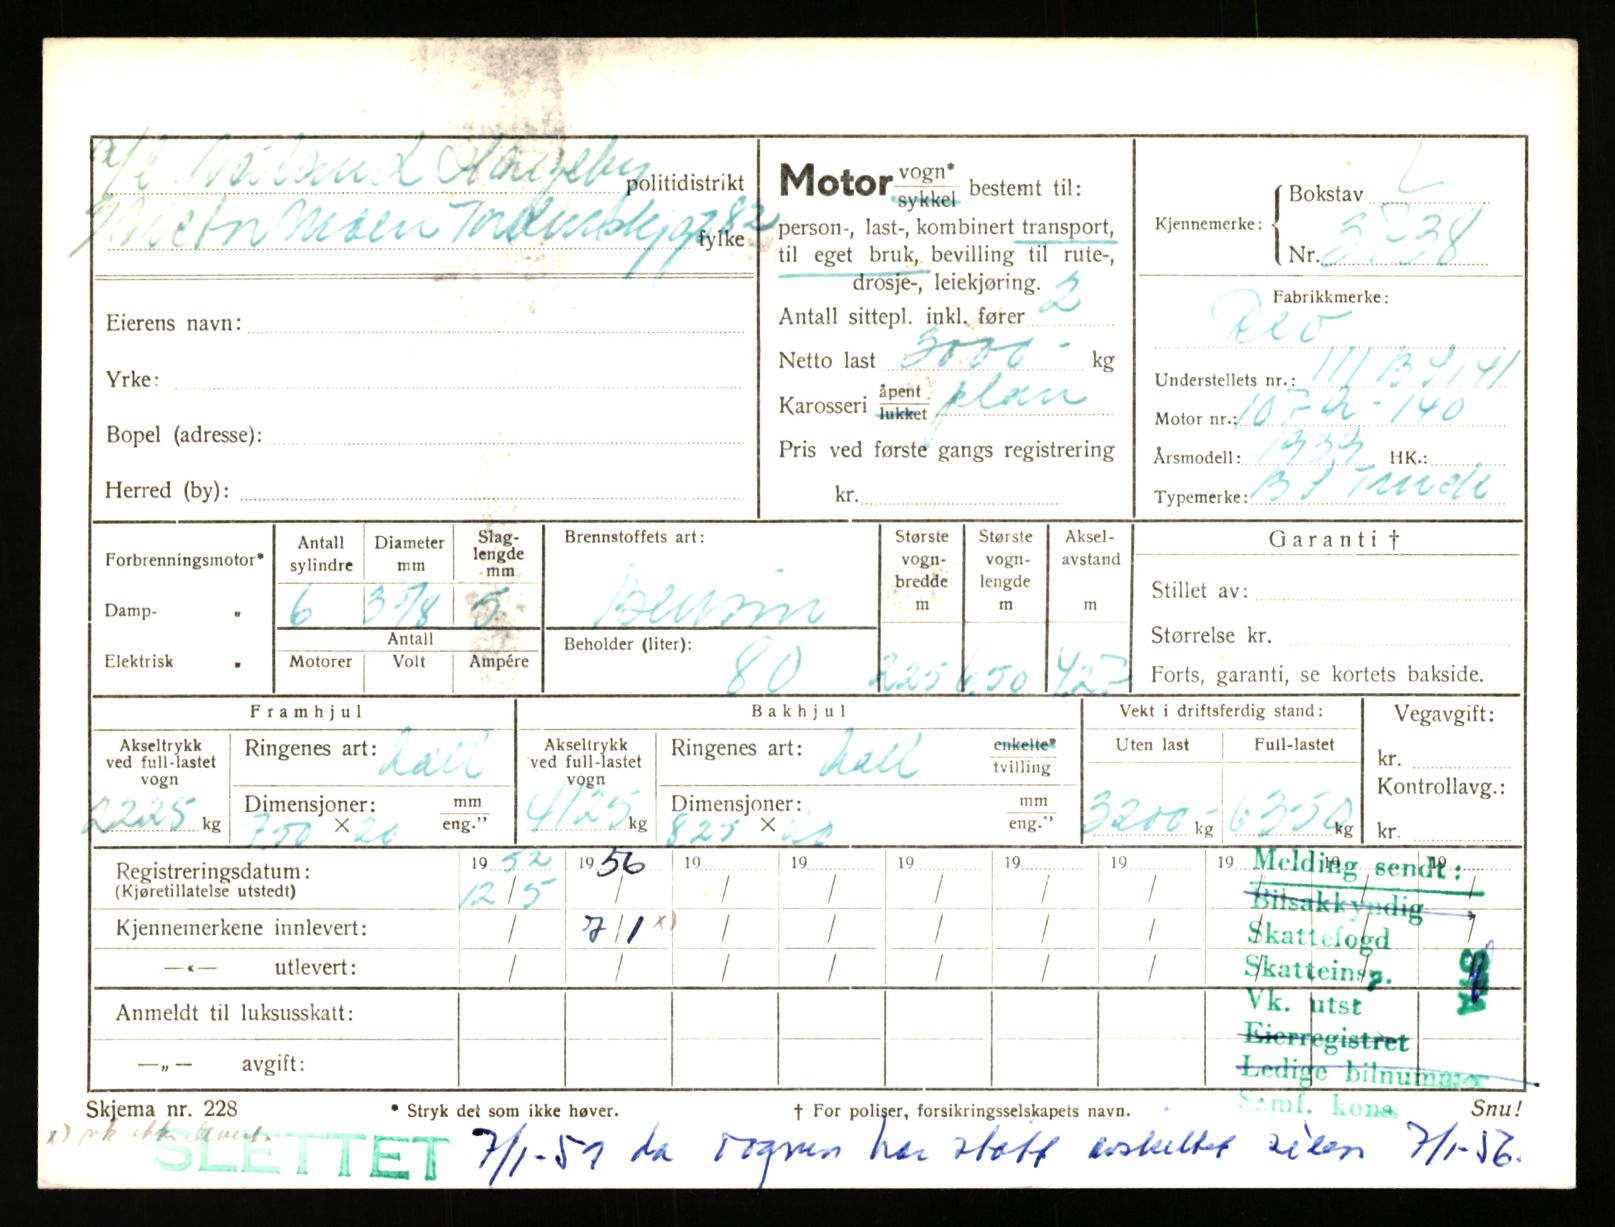 politidistrikt
fylke
Eierens navn:
Yrke:
Bopel (adresse):
Herred (by):
Motor vogn* sykkel bestemt til:
person-, last-, kombinert transport,
til eget bruk, bevilling til rute-,
drosje-, leiekjøring.
Antall sittepl. inkl. fører 2
Netto last 3000 - kg
Karosseri åpent lukket plan
Pris ved første gangs registrering
kr.
Kjennemerke: Bokstav L
Nr. 3538
Fabrikkmerke:
Reo
Understellets nr.:
Motor nr.:
Årsmodell: 1939 HK.:
Typemerke:
Forbrenningsmotor*
Damp- „
Elektrisk „
Antall sylindre
6
Diameter mm
3 5/8
Slag-lengde mm
5
Antall
Motorer Volt Ampére
Brennstoffets art:
Bensin
Beholder (liter):
80
Største vogn-bredde m
225
Største vogn-lengde m
6.50
Aksel-avstand m
Garanti †
Stillet av:
Størrelse kr.
Forts, garanti, se kortets bakside.
Framhjul
Akseltrykk ved full-lastet vogn
2225 kg
Ringenes art:
Dimensjoner: mm eng."
750 × 20
Bakhjul
Akseltrykk ved full-lastet vogn
4125 kg
Ringenes art: enkelte* tvilling
Dimensjoner: mm eng."
825 × 20
Vekt i driftsferdig stand:
Uten last Full-lastet
3200 - kg 6350 kg
Vegavgift:
kr.
Kontrollavg.:
kr.
Registreringsdatum: 19 52 19 56 19 19 19 19 19 19 19 19
(Kjøretillatelse utstedt) 12 / 5
Kjennemerkene innlevert: 7/1 x)
—«— utlevert:
Anmeldt til luksusskatt:
—„— avgift:
Melding sendt:
Bilsakkyndig
Skattefogd
Skatteinsp.
Vk. utst
Eierregistret
Ledige bilnummer
Samf. kons.
Skjema nr. 228
* Stryk det som ikke høver.
† For poliser, forsikringsselskapets navn.
Snu!
x) vk ikke levert.
SLETTET 7/1-59 da vognen har stått avskiltet siden 7/1-56.